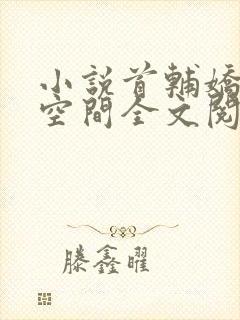 小說首輔嬌
空間全文閱
滕鑫曜